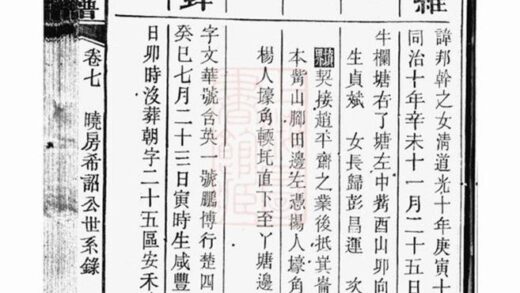 諱邦幹之女清道光十年庚寅十
同治十年辛未十一月二十五日
牛欄塘右了塘左中嘴酉山卯向
生貞斌 女長歸彭昌運 次
契接趙平齋之業後抵箕崙
本嘴山腳田邊左憑楊人壕角
楊人壕角頓圫直下至丫塘邊
字文華號含英一號鵬博行楚四
癸巳七月二十三日寅時生咸豐
日卯時沒葬朝字二十五區安禾
卷七 曉房希韶公世系錄